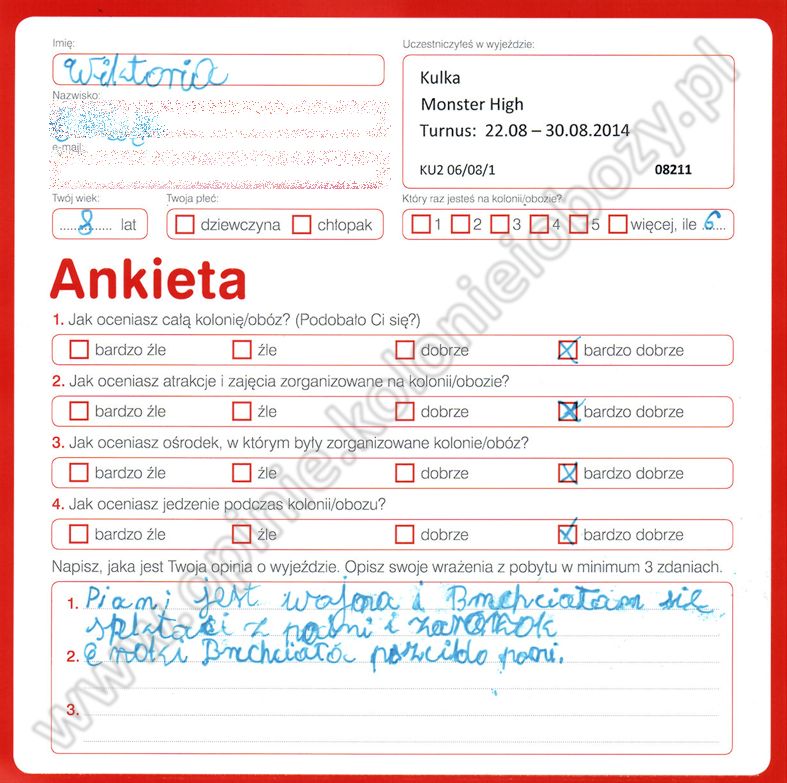 Imię:
Wiktoria
Nazwisko:
e-mail:
Uczestniczyłeś w wyjeździe:
Kulka
Monster High
Turnus: 22.08 – 30.08.2014
KU2 06/08/1 08211
Twój wiek:
8 lat
Twoja płeć:
dziewczyna chłopak
Który raz jesteś na kolonii/obozie?
1 2 3 4 5 więcej, ile 6
Ankieta
1. Jak oceniasz całą kolonię/obóz? (Podobało Ci się?)
bardzo źle źle dobrze bardzo dobrze
2. Jak oceniasz atrakcje i zajęcia zorganizowane na kolonii/obozie?
bardzo źle źle dobrze bardzo dobrze
3. Jak oceniasz ośrodek, w którym były zorganizowane kolonie/obóz?
bardzo źle źle dobrze bardzo dobrze
4. Jak oceniasz jedzenie podczas kolonii/obozu?
bardzo źle źle dobrze bardzo dobrze
Napisz, jaka jest Twoja opinia o wyjeździe. Opisz swoje wrażenia z pobytu w minimum 3 zdaniach.
1. Piani jest wajna i Bmchciałam sie
z pani i za rok
2. noki pani.
3.
www.opinie.kolonieiobozy.pl